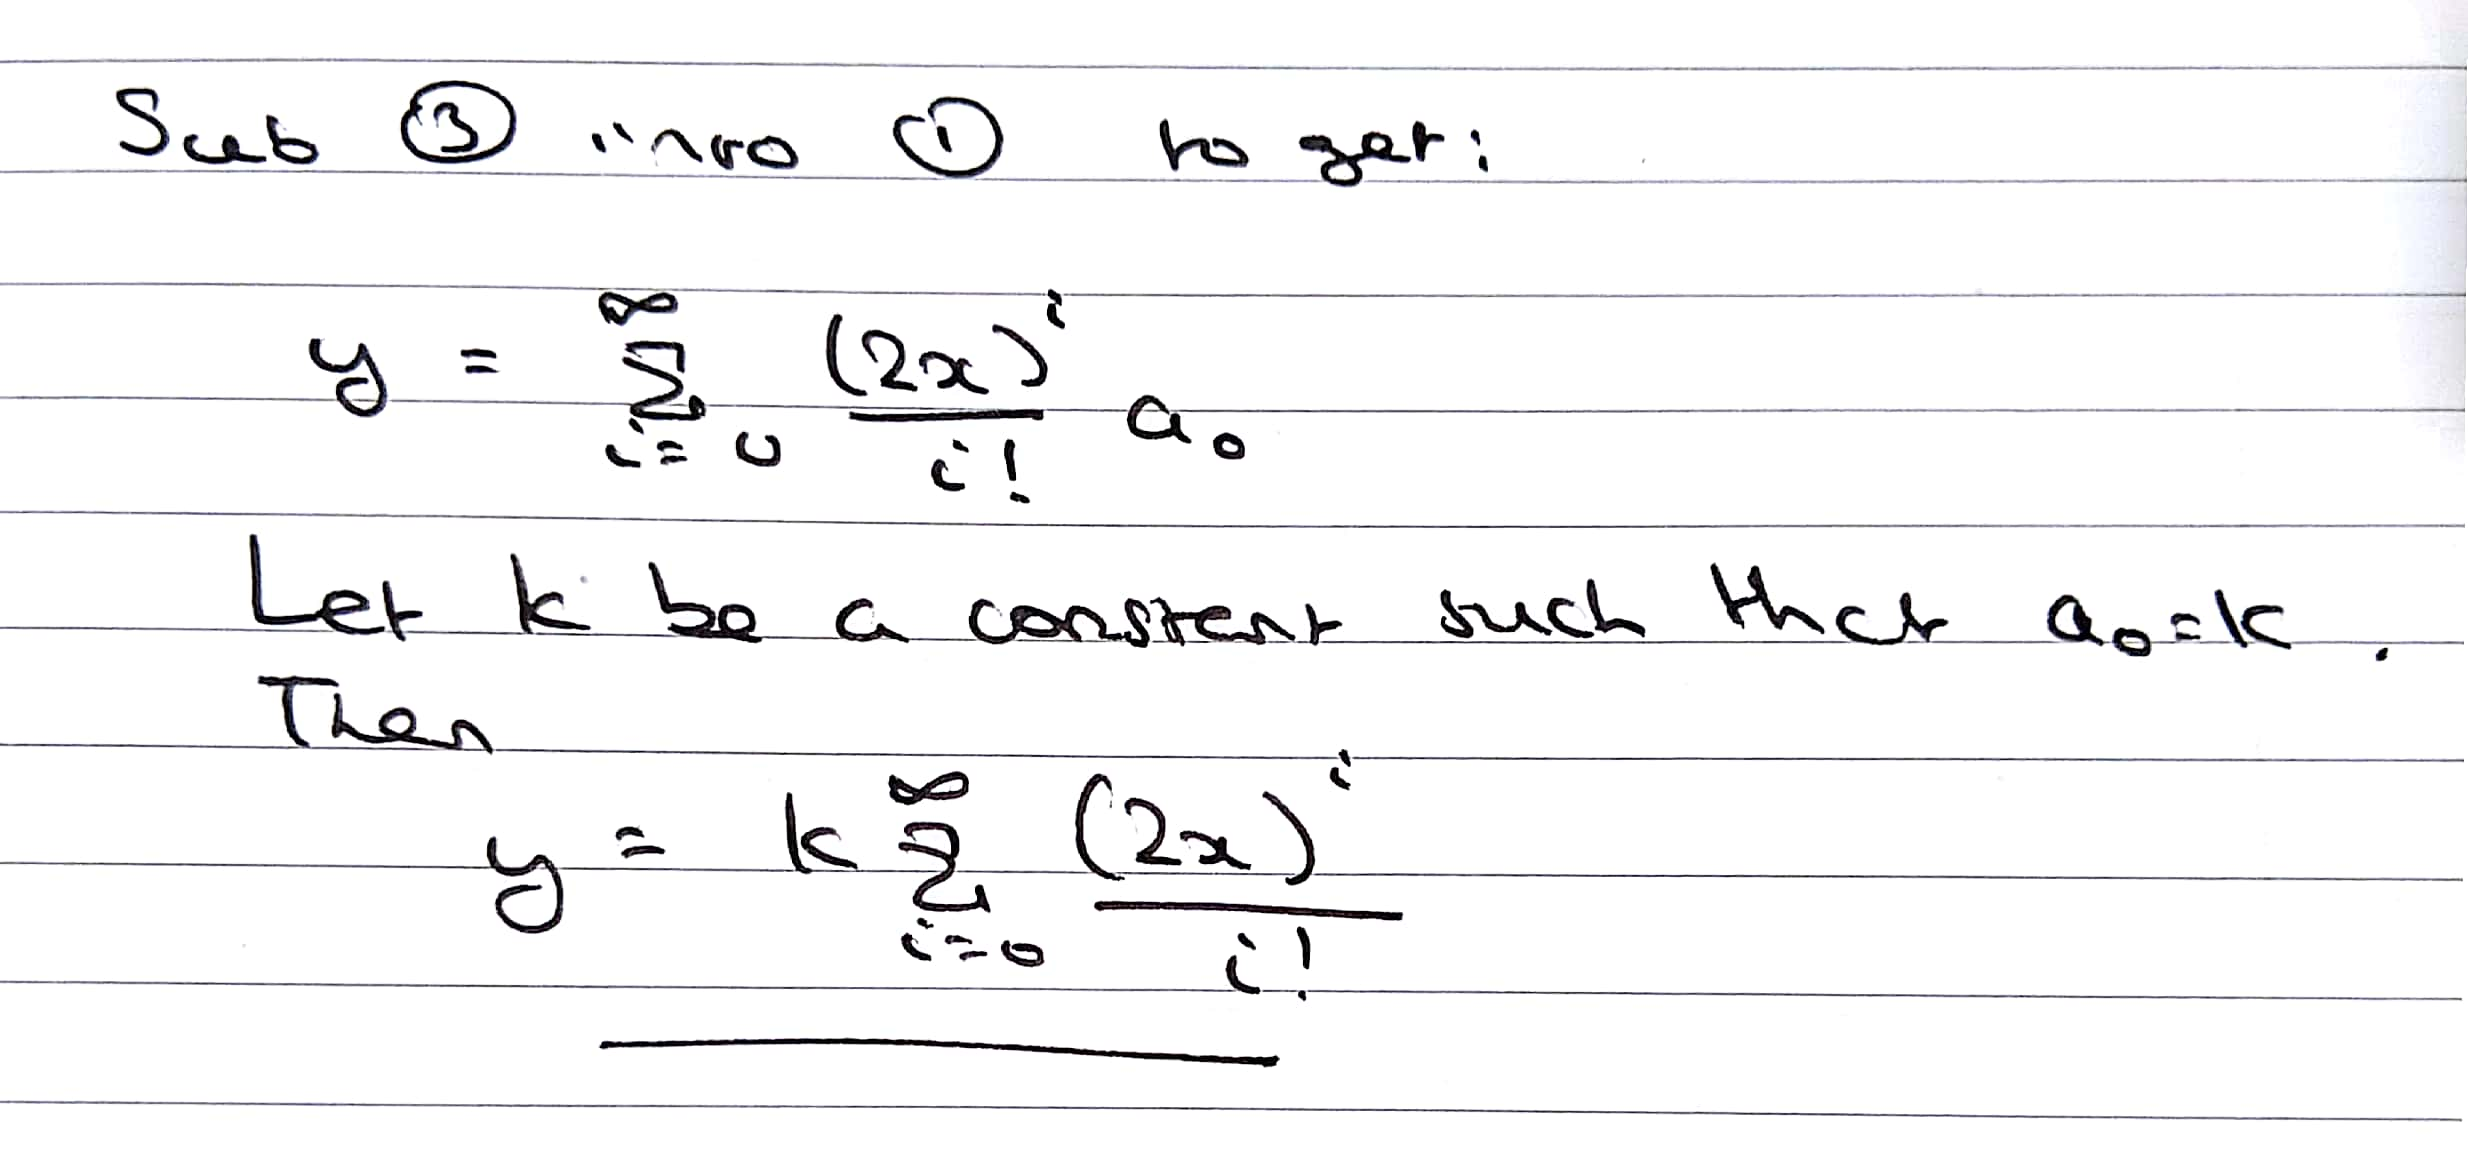 Sub ③ into ① to get:
y = ∑_{i=0}^{∞} \frac{(2x)^i}{i!} a₀
Let k be a constant such that a₀ = k.
Then
y = k ∑_{i=0}^{∞} \frac{(2x)^i}{i!}